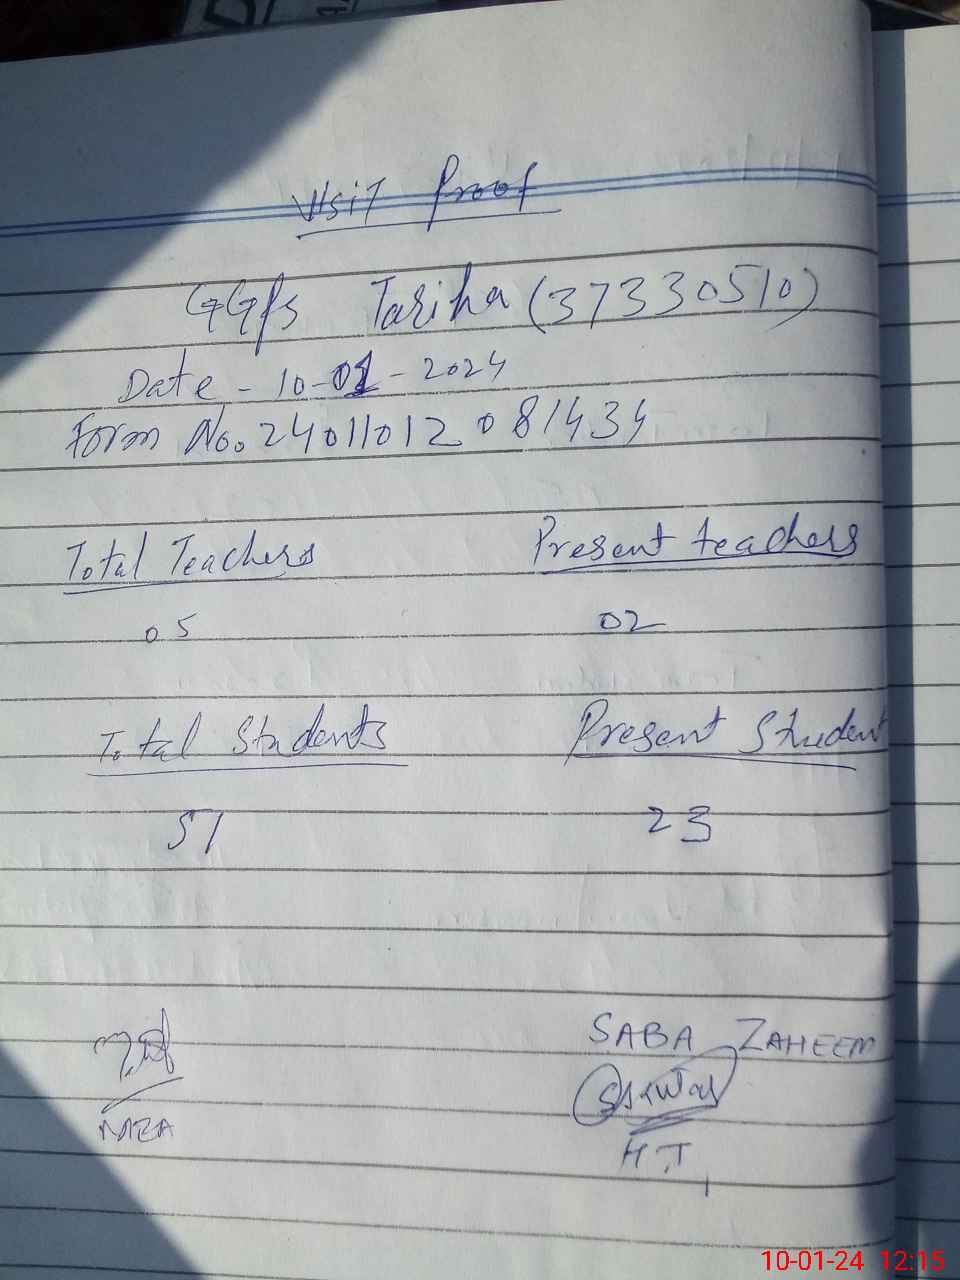 Visit Proof
GGPS Tariha (37330510)
Date - 10-01-2024
Form No. 24011012081434
Total Teachers Present teachers
05 02
Total Students Present Student
51 23
SABA ZAHEEM
MEA
H.T
10-01-24 12:15